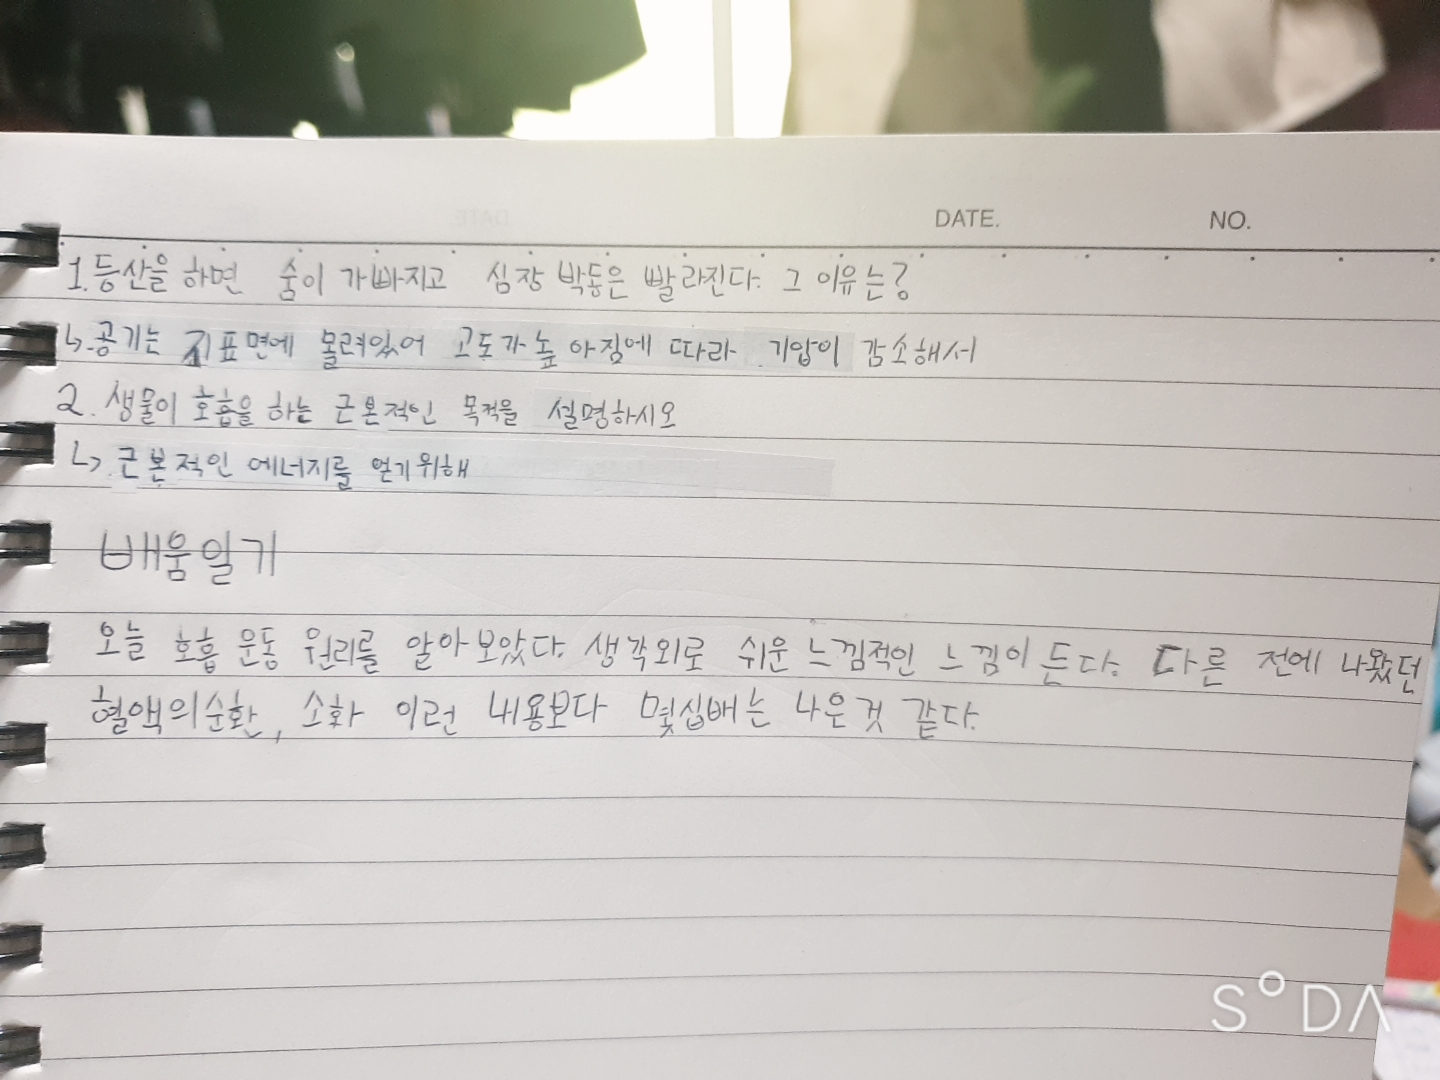 DATE. NO.
1. 등산을 하면 숨이 가빠지고 심장 박동은 빨라진다. 그 이유는?
↳ 공기는 지표면에 몰려있어 고도가 높아짐에 따라 기압이 감소해서
2. 생물이 호흡을 하는 근본적인 목적을 설명하시오
↳ 근본적인 에너지를 얻기위해
배움일기
오늘 호흡 운동 원리를 알아보았다. 생각외로 쉬운 느낌적인 느낌이 든다. 다른 전에 나왔던
혈액의순환, 소화 이런 내용보다 몇십배는 나은것 같다.
SODA